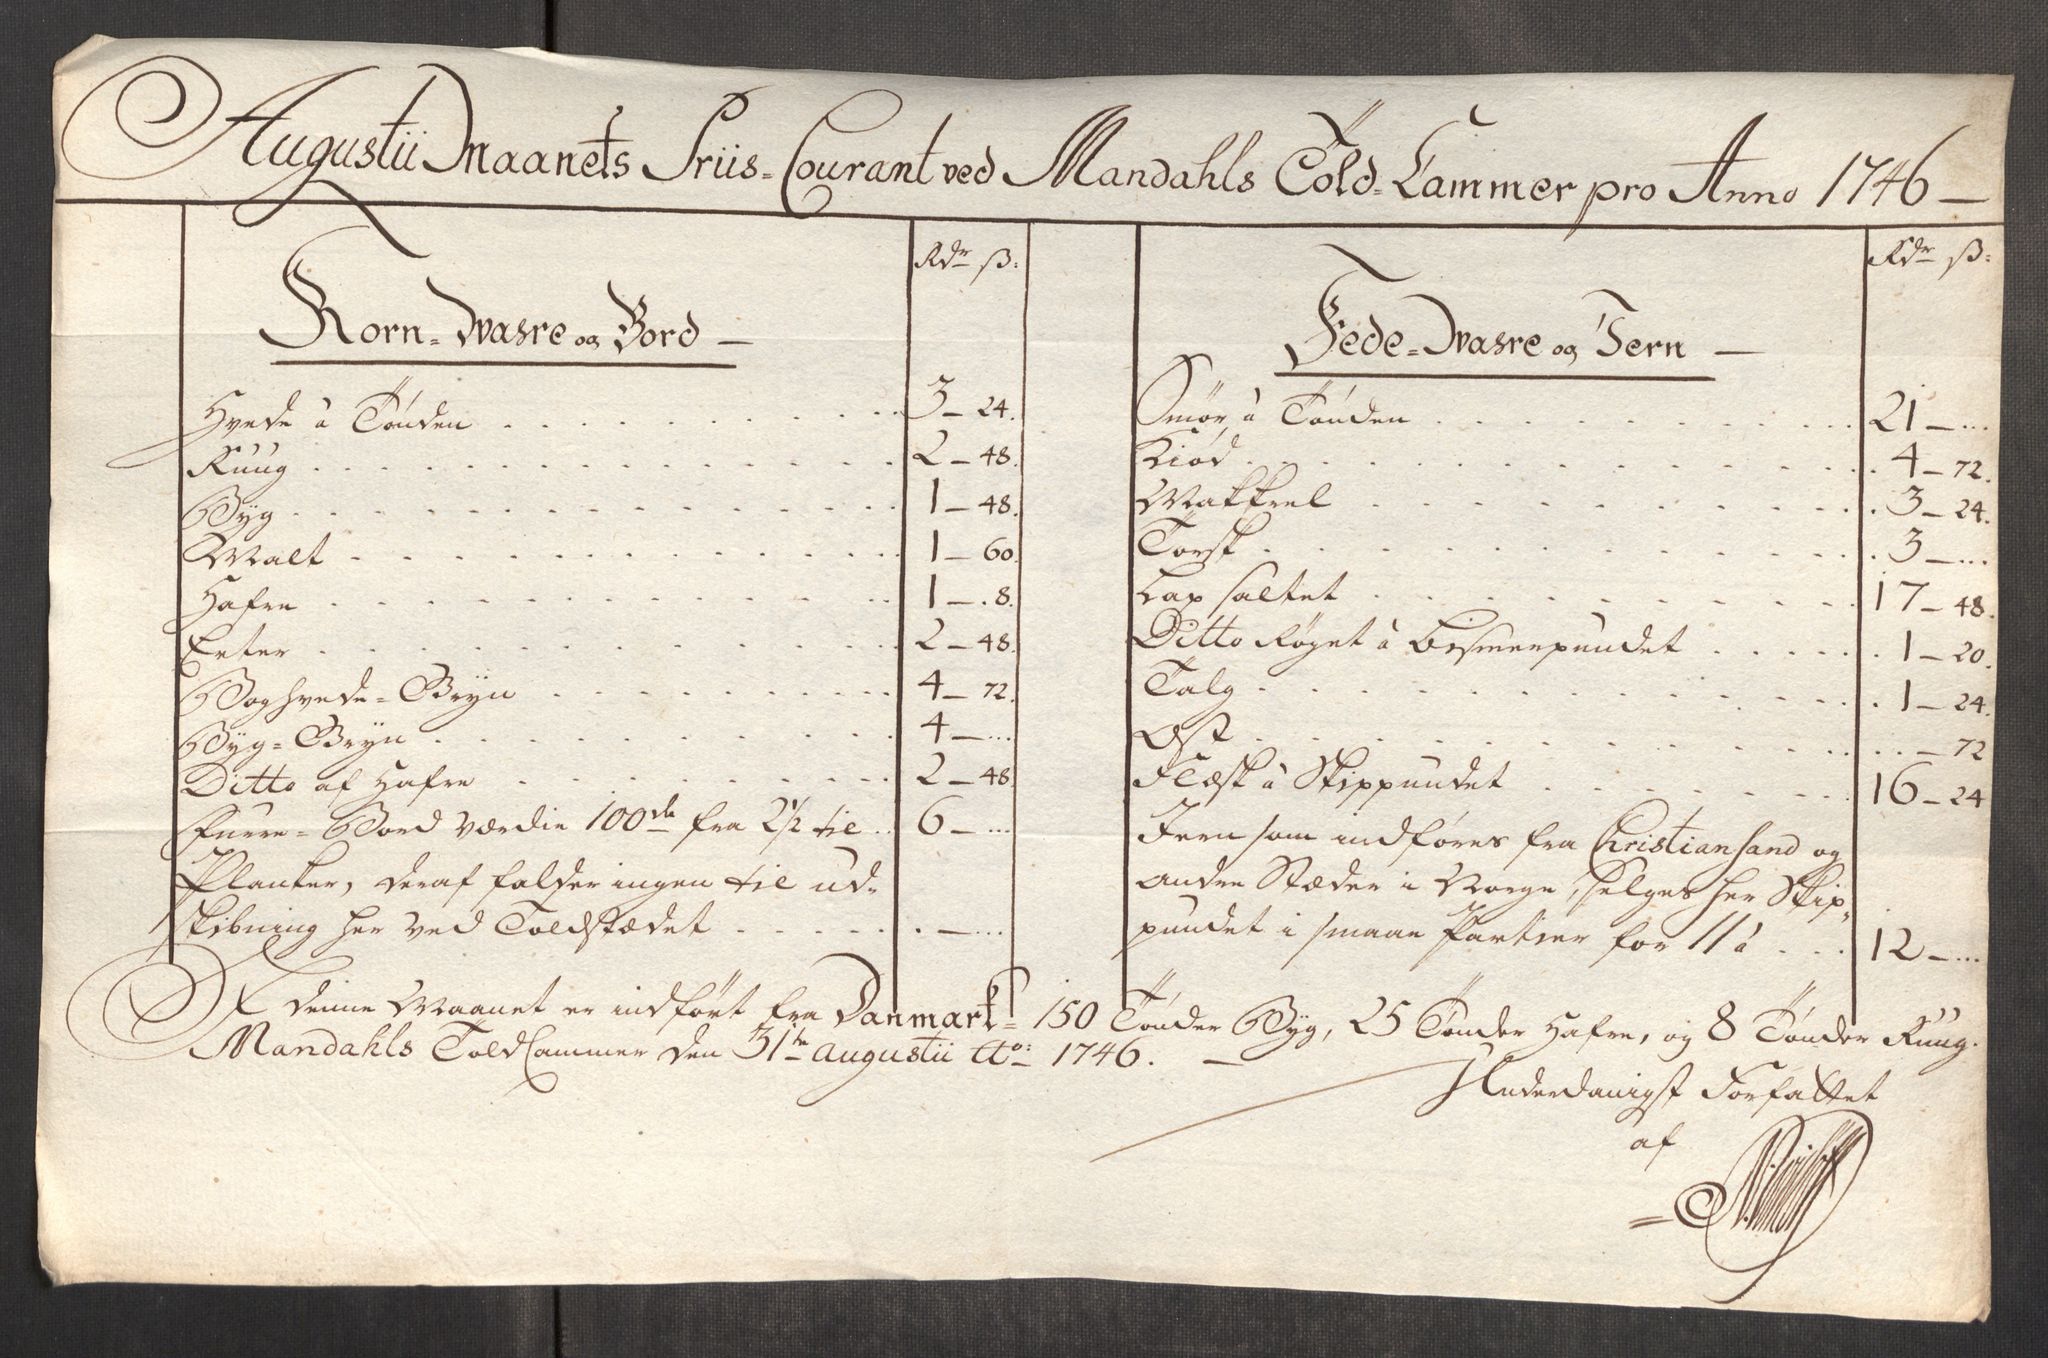 Augustii Maanets Priis-Courant ved Mandahls Told-Cammer pro Anno 1746 —
Rdr ß:
Korn-Waare og Bord —
Hvede à Tönden . . . 3 — 24.
Ruug . . . 2 — 48.
Byg . . . 1 — 48.
Malt . . . 1 — 60.
Hafre . . . 1 — . 8.
Erter . . . 2 — 48.
Boghvede-Gryn . . . 4 — 72.
Byg-Gryn . . . 4 — ...
Ditto af Hafre . . . 2 — 48.
Furre-Bord værdie 100de fra 2 1/2 til . . 6 — ...
Planker, deraf falder ingen til ud-
skibning her ved Toldstædet . . . — ...
Rdr ß:
Fede-Waare og Jern —
Smör à Tönden . . . 21 — ...
Kiöd . . . 4 — 72.
Makkrel . . . 3 — 24.
Torsk . . . 3 — ...
Lax saltet . . . 17 — 48.
Ditto Röget à Bismerpundet . . . 1 — 20.
Talg . . . 1 — 24.
Ost . . . — 72
Flæsk à Skippundet . . . 16 — 24
Jern som indföres fra Christiansand og
andre Stæder i Norge, selges her Skip-
pundet i smaae Partier for 11 à . . . 12 — ...
I denne Maanet er indfört fra Danmark = 150 Tönder Byg, 25 Tönder Hafre, og 8 Tönder Ruug.
Mandahls Told Cammer den 31te Augustii Ao: 1746. —
Underdanigst Forfattet
af